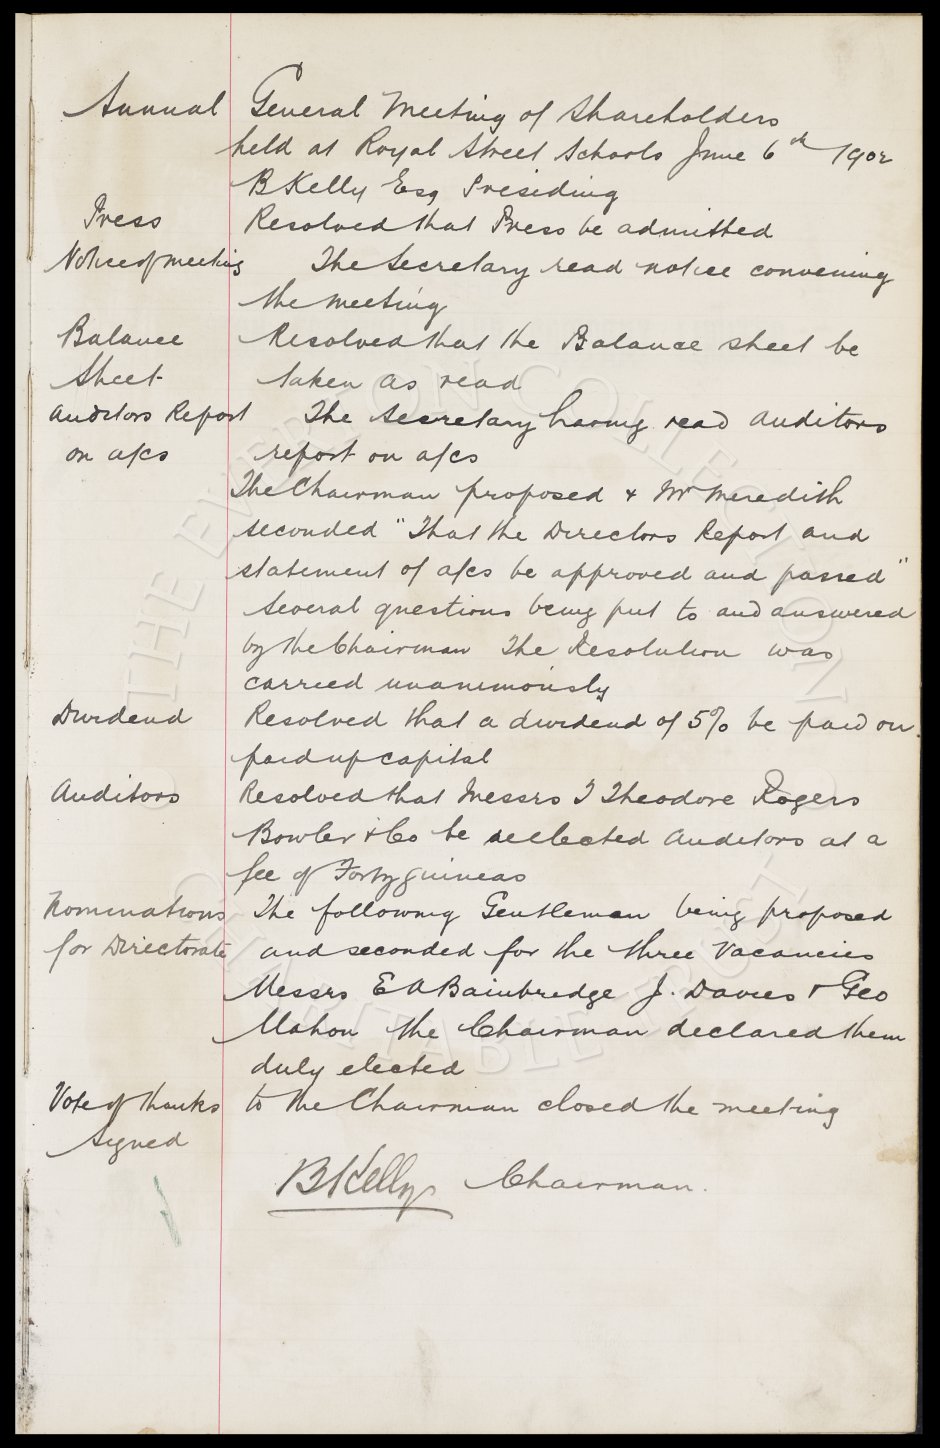 Annual General Meeting of Shareholders
held at Royal Street Schools June 6th 1902
B Kelly Esq Presiding
Press Resolved that Press be admitted
Notice of meeting The Secretary read notice convening
the meeting
Balance Resolved that the Balance sheet be
Sheet taken as read
Auditors Report The Secretary having read auditors
on a/cs report on a/cs
The Chairman proposed & Mr Meredith
seconded "That the Directors Report and
statement of a/cs be approved and passed"
Several questions being put to and answered
by the Chairman The Resolution was
carried unanimously
Dividend Resolved that a dividend of 5% be paid on
paid up capital
Auditors Resolved that Messrs T Theodore Rogers
Bowler & Co be reelected Auditors at a
fee of Forty guineas
Nominations The following Gentlemen being proposed
for Directorate and seconded for the three Vacancies
Messrs E A Bainbridge J. Davies & Geo
Mahon the Chairman declared them
duly elected
Vote of thanks to the Chairman closed the meeting
Signed
B Kelly Chairman.
THE EVERTON COLLECTION
CHARITABLE TRUST